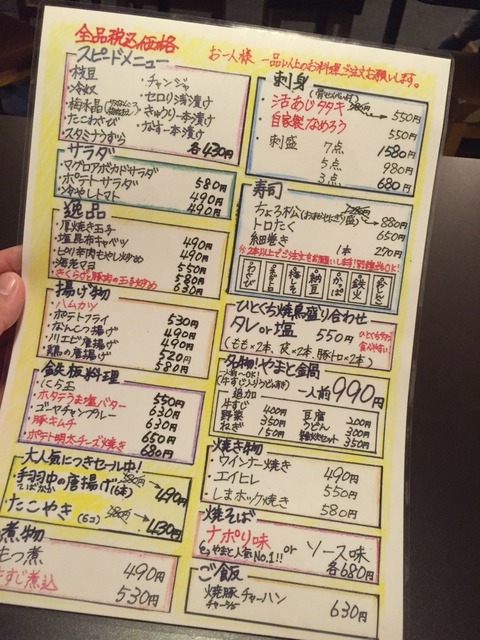 全品税込価格
お一人様 一品以上のお料理ご注文お願いします。
スピードメニュー
・枝豆
・冷奴
・梅水晶
・たこわさび
・スタミナうずら
・チャンジャ
・セロリ浅漬け
・きゅうり一本漬け
・なす一本漬け
各430円
サラダ
・マグロアボカドサラダ 580円
・ポテトサラダ 490円
・冷やしトマト 490円
逸品
・厚焼き玉子 490円
・塩昆布キャベツ 490円
・ピリ辛肉もやし炒め 490円
・海老マヨ 550円
・きくらげと豚肉の玉子炒め 630円
揚げ物
・ハムカツ
・ポテトフライ 530円
・なんこつ揚げ 490円
・川エビ唐揚げ 490円
・鶏の唐揚げ 520円
580円
鉄板料理
・にら玉 550円
・ホタテうま塩バター 630円
・ゴーヤチャンプルー 630円
・豚キムチ 650円
・ポテト明太チーズ焼き 680円
大人気につきセール中!
・手羽中の唐揚げ(6本) 490円
・たこやき(6コ) 430円
煮物
もつ煮 490円
牛すじ煮込 530円
刺身
・活あじタタキ 550円
・自家製なめろう 550円
・刺盛 7点 1580円
5点 980円
3点 680円
寿司
・ちょろ松 880円
・トロたく 650円
・細巻き 1本 270円
ひとくち焼鳥盛り合わせ
タレ or 塩 550円
(もも×2本、皮×2本、豚トロ×2本)
名物!やまと鍋
一人前〜OK!
一人前 990円
追加
牛すじ 400円
野菜 350円
ねぎ 150円
豆腐 200円
うどん 300円
雑炊セット 350円
焼き物
・ウインナー焼き 490円
・エイヒレ 550円
・しまホッケ焼き 580円
焼そば
・ナポリ味 or ソース味
やまと人気No.1!!
各680円
ご飯
・焼豚チャーハン 630円
チャーシュー